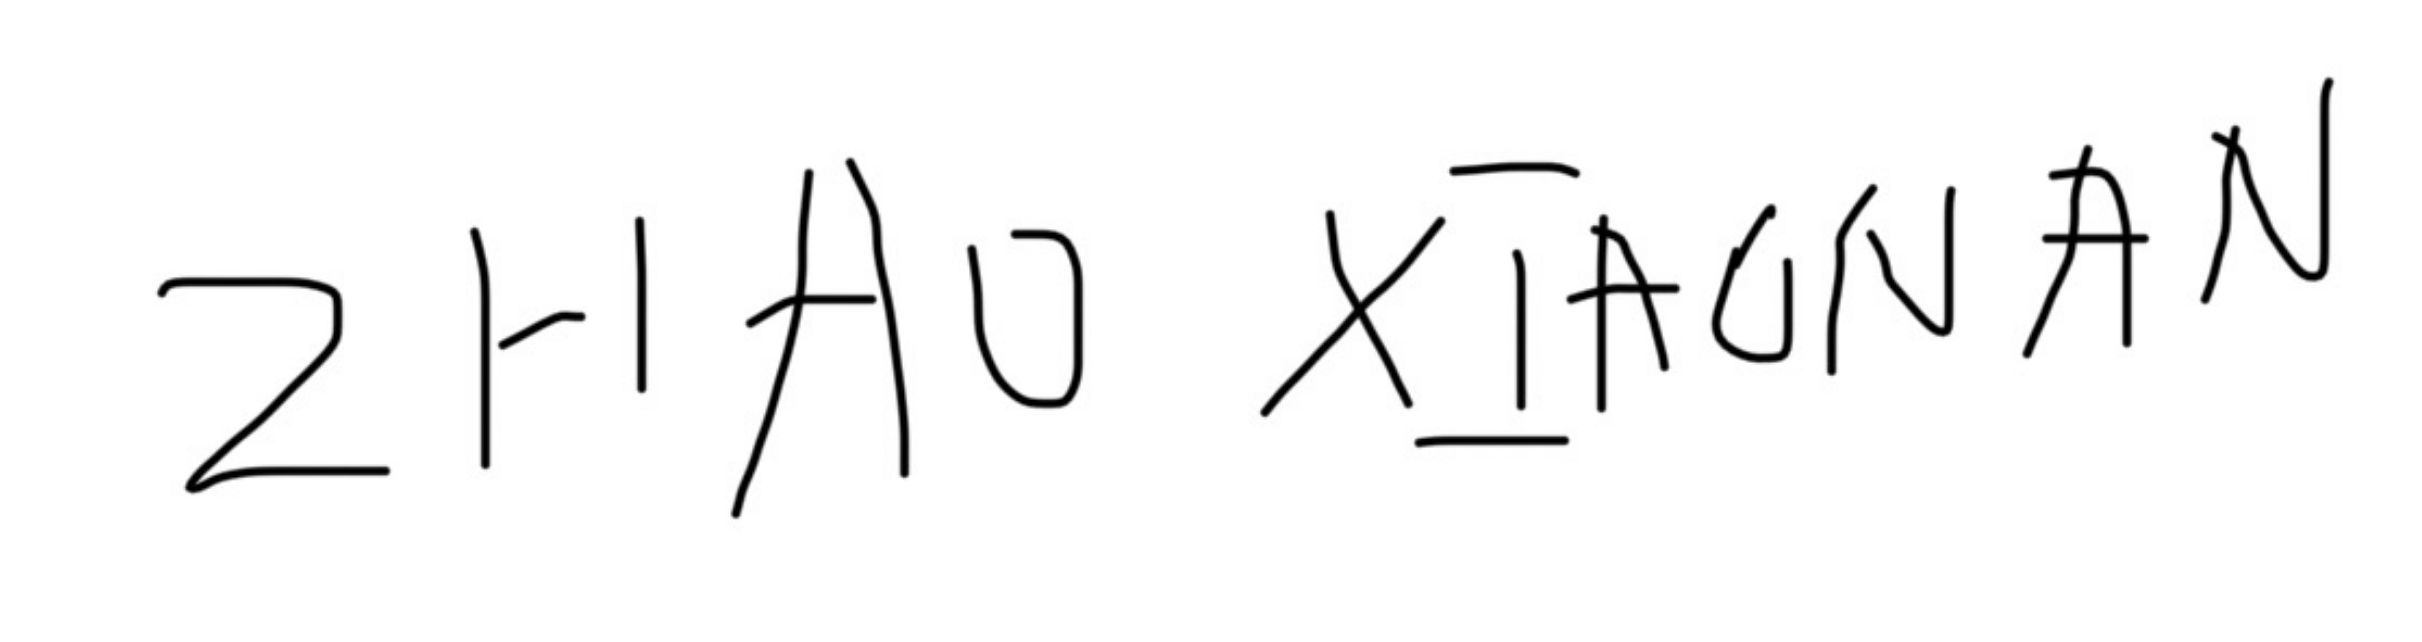 ZHAO XIAONAN